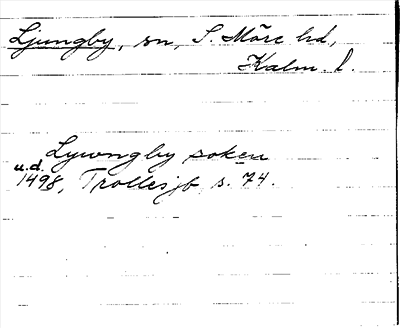 Ljungby, sn, S. Möre hd,
Kalm. l.
Lywngby soken
u.d.
1498, Trolles jb s. 74.